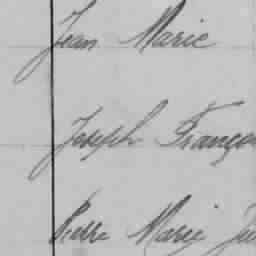 Jean Marie
Joseph Franço
Pierre Marie Ju